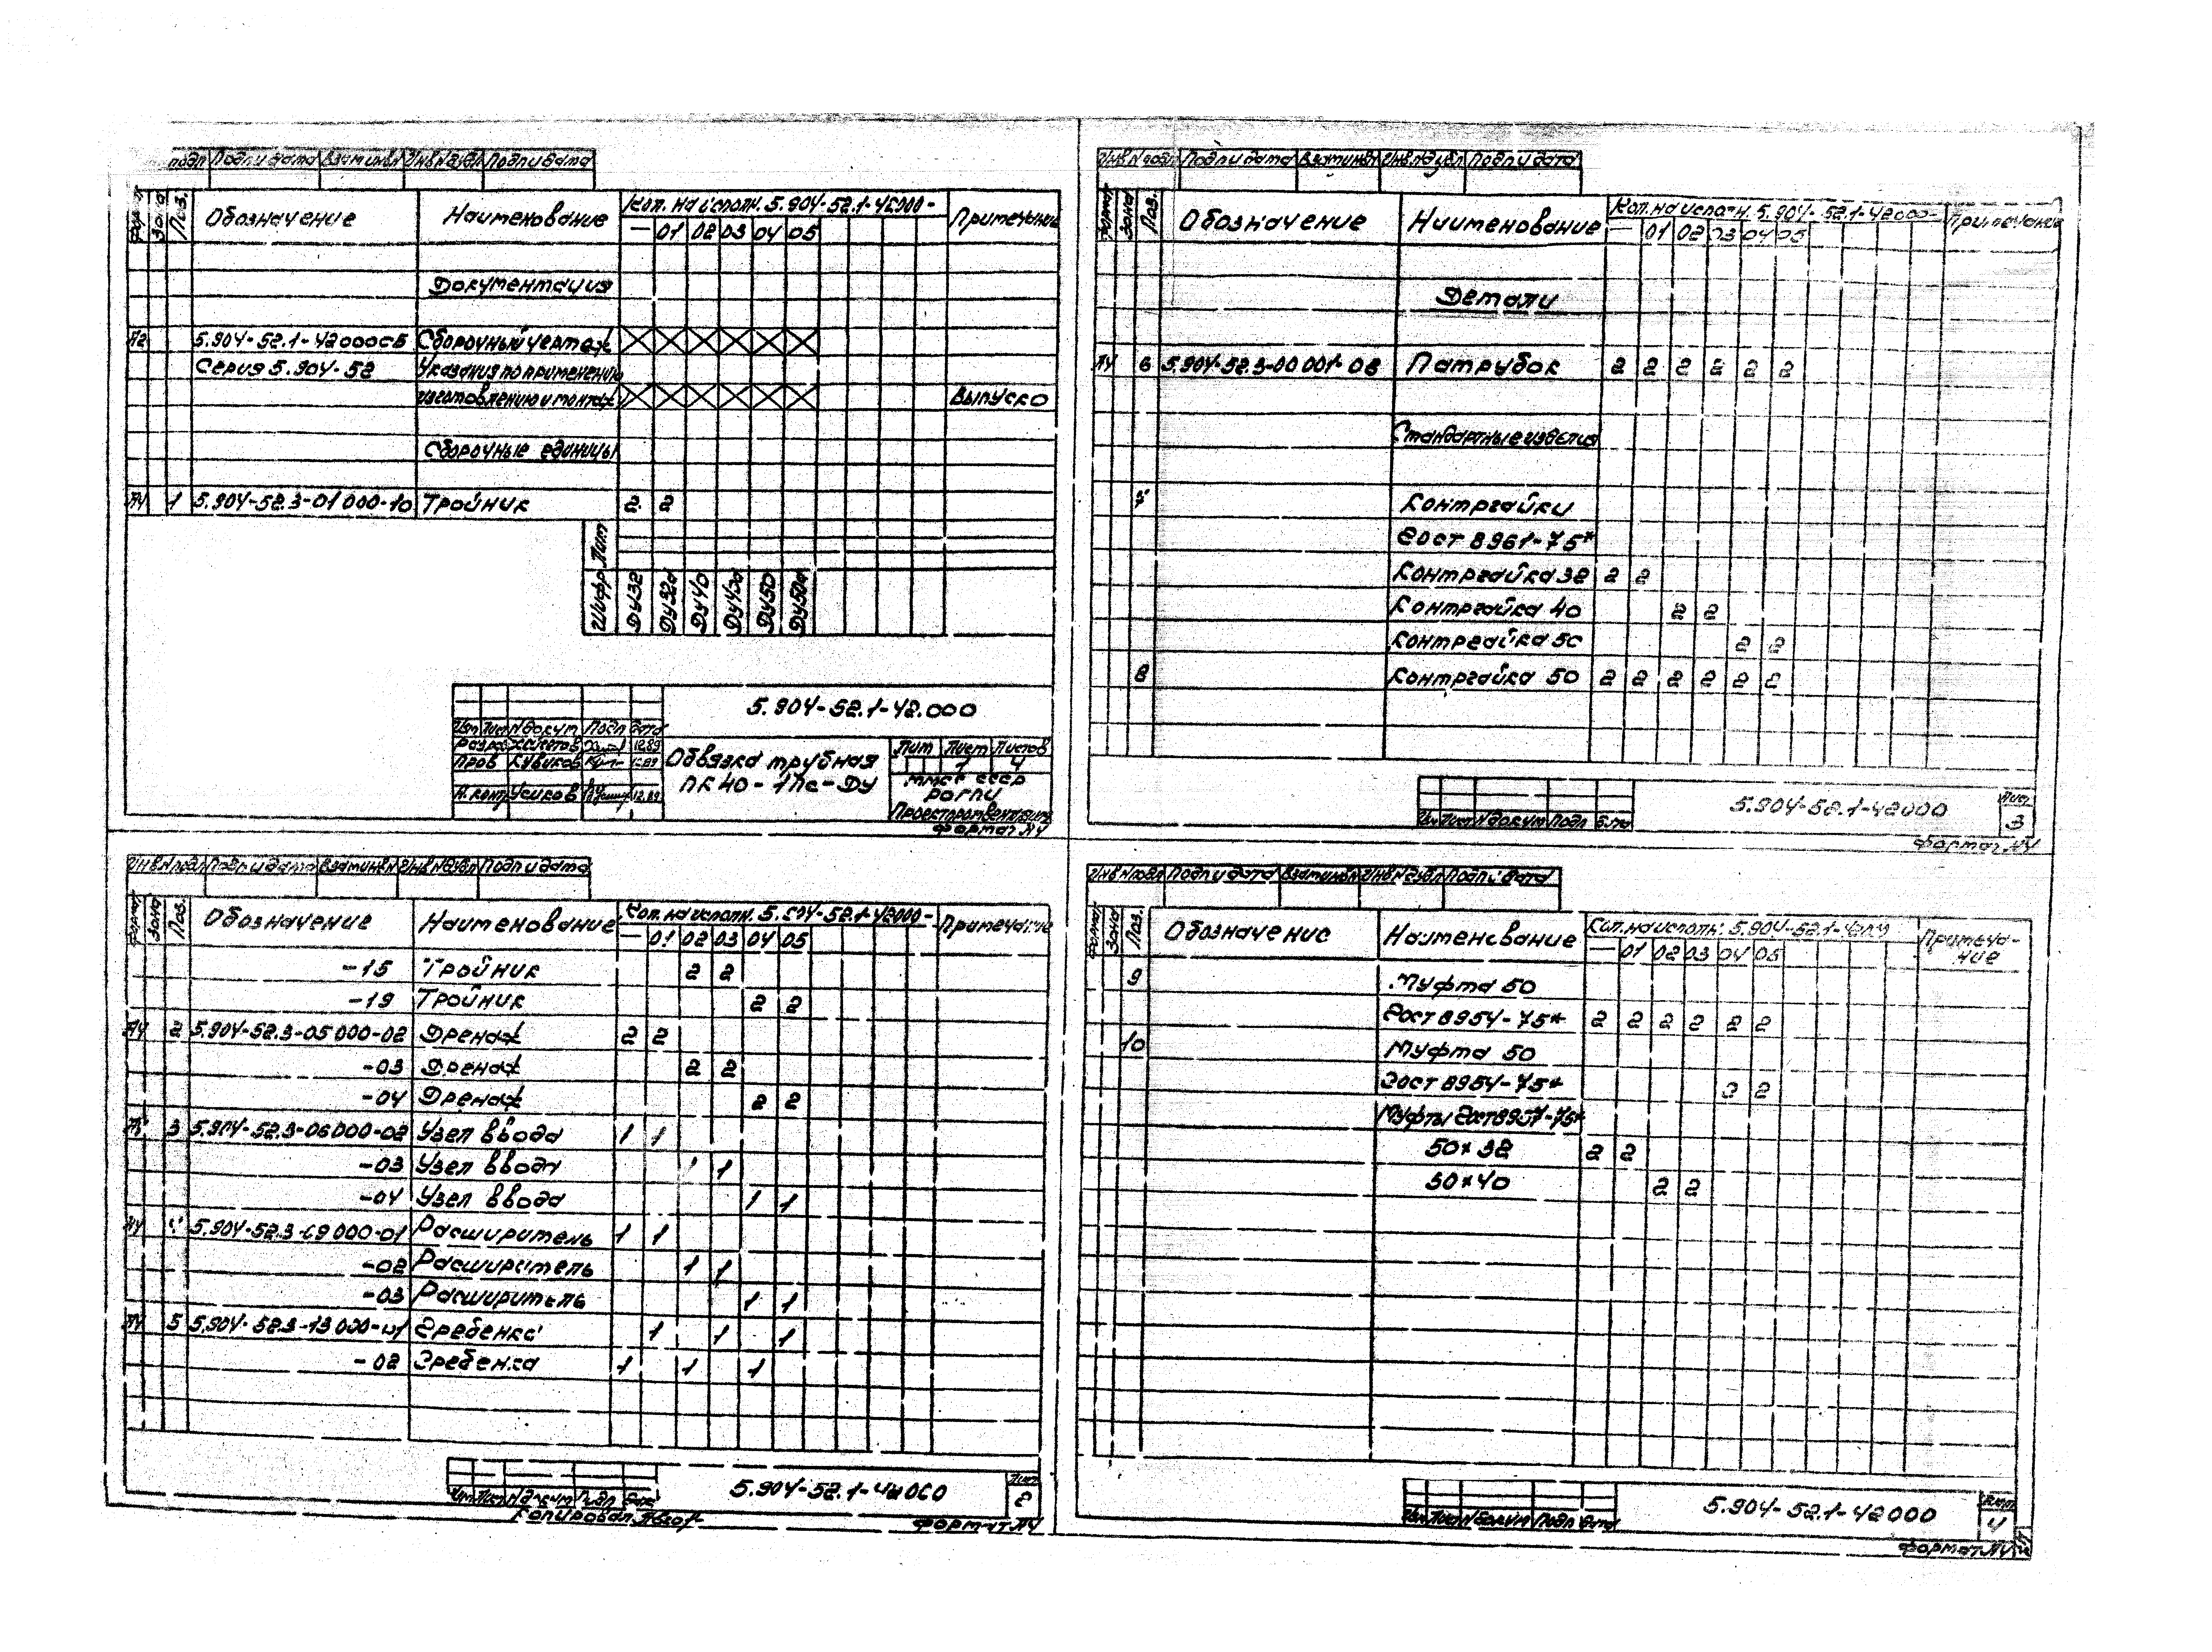 подл Подп и дата Взам инв N Инв N дубл Подп и дата
Формат Зона Поз. Обозначение Наименование Кол. на исполн. 5.904-52.1-42000- Примечание
— 01 02 03 04 05
Документация
А2 5.904-52.1-42000СБ Сборочный чертеж
Серия 5.904-52 Указания по применению
изготовлению и монтажу Выпуск 0
Сборочные единицы
А4 1 5.904-52.3-01000-10 Тройник 2 2
Лит
Шифр Ду32 Ду32а Ду40 Ду40а Ду50 Ду50а
5.904-52.1-42.000
Изм Лист N докум Подп Дата
Разраб 12.89
Пров Кувиков 12.89
Н. контр Усиков 12.89
Обвязка трубная
ПК40-1Пс-Ду
Лит Лист Листов
1 4
ММСС СССР
РОГПИ
Проектпромвентиляция
Формат А4
Инв N подл Подп и дата Взам инв N Инв N дубл Подп и дата
Формат Зона Поз. Обозначение Наименование Кол. на исполн. 5.904-52.1-42000- Примечание
— 01 02 03 04 05
-15 Тройник 2 2
-19 Тройник 2 2
А4 2 5.904-52.3-05000-02 Дренаж 2 2
-03 Дренаж 2 2
-04 Дренаж 2 2
3 5.904-52.3-06000-02 Узел ввода 1 1
-03 Узел ввода 1 1
-04 Узел ввода 1 1
А4 4 5.904-52.3-09000-01 Расширитель 1 1
-02 Расширитель 1 1
-03 Расширитель 1 1
А4 5 5.904-52.3-13000-01 Гребенка 1 1 1
-02 Гребенка 1 1 1
5.904-52.1-42000
Лист
2
Изм Лист N докум Подп Дата
Копировал
Формат А4
Инв N подл Подп и дата Взам инв N Инв N дубл Подп и дата
Формат Зона Поз. Обозначение Наименование Кол. на исполн. 5.904-52.1-42000- Примечание
— 01 02 03 04 05
Детали
А4 6 5.904-52.3-00001-06 Патрубок 2 2 2 2 2 2
Стандартные изделия
7 Контргайки
Гост 8961-75*
Контргайка 32 2 2
Контргайка 40 2 2
Контргайка 50 2 2
8 Контргайка 50 2 2 2 2 2 2
5.904-52.1-42000
Лист
3
Изм Лист N докум Подп Дата
Формат А4
Инв N подл Подп и дата Взам инв N Инв N дубл Подп и дата
Формат Зона Поз. Обозначение Наименование Кол. на исполн. 5.904-52.1-42000 Примеча-
ние
— 01 02 03 04 05
9 Муфта 50
Гост 8954-75* 2 2 2 2 2 2
10 Муфта 50
Гост 8954-75* 2 2
Муфты Гост 8957-75*
50×32 2 2
50×40 2 2
5.904-52.1-42000
Лист
4
Изм Лист N докум Подп Дата
Формат А4